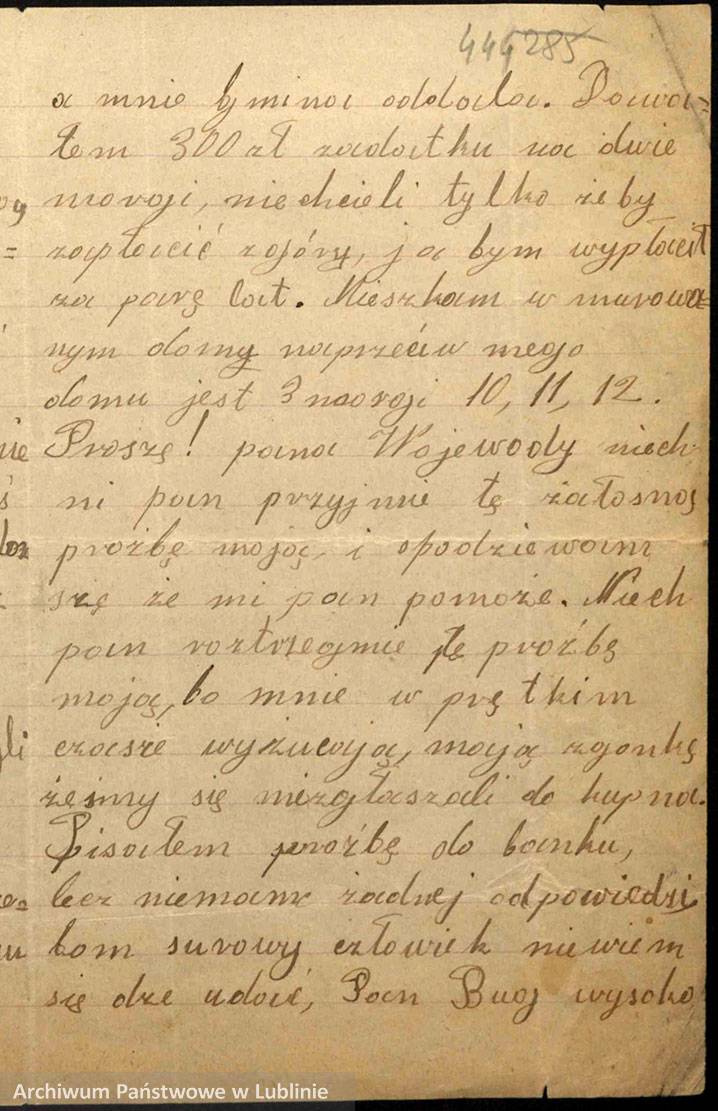 444 285
a mnie Gmina oddała. Dawa=
łem 300 zł zadatku na dwie
morgi, niechcieli tylko żeby
zapłacić zgóry, ja bym wypłacił
za parę lat. Mieszkam w murowa=
nym domu naprzeciw mego
domu jest 3 morgi 10, 11, 12.
Proszę! pana Wojewody niech
ni pan przyjmie tę żałosną
proźbę moją, i spodziewam
szę że mi pan pomoże. Niech
pan roztrzegnie tę proźbę
moją, bo mnie w prętkim
czasie wyżucają, mają zgonkę
żeśmy się niezgłaszali do kupna.
Pisałem proźbę do banku,
lecz niemam żadnej odpowiedzi
bom surowy człowiek niewiem
się dze udać, Pan Bug wysoko
Archiwum Państwowe w Lublinie